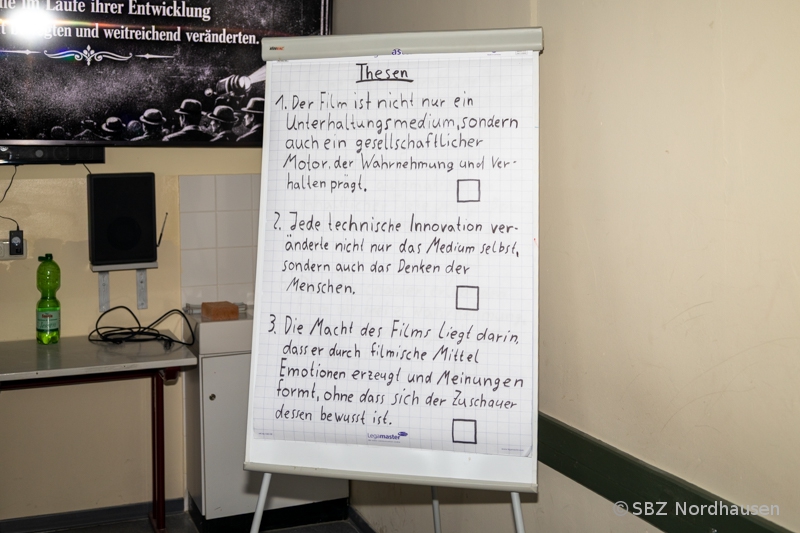 im Laufe ihrer Entwicklung
und weitreichend veränderten.
Thesen
1. Der Film ist nicht nur ein
Unterhaltungsmedium, sondern
auch ein gesellschaftlicher
Motor, der Wahrnehmung und Ver-
halten prägt.
2. Jede technische Innovation ver-
änderte nicht nur das Medium selbst,
sondern auch das Denken der
Menschen.
3. Die Macht des Films liegt darin,
dass er durch filmische Mittel
Emotionen erzeugt und Meinungen
formt, ohne dass sich der Zuschauer
dessen bewusst ist.
Legamaster
© SBZ Nordhausen